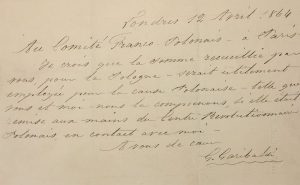 Londres 12 Avril 1864
Au Comité Franco-Polonais - à Paris
Je crois que la somme recueillie par
vous, pour la Pologne - serait utilement
employée pour la cause Polonaise - telle que
vous et moi nous la comprenons, si elle était
remise aux mains du Centre Révolutionnaire
Polonais en contact avec moi -
A vous de cœur
G. Garibaldi